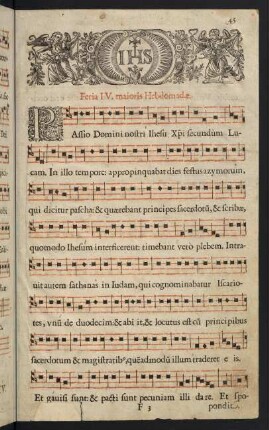 45
IHS
Feria IV. maioris Hebdomadæ.
PAssio Domini nostri Ihesu Xp̃i secundum Lu-
cam. In illo tempore: appropinquabat dies festus azymorum,
qui dicitur pascha: & quærebant principes sacerdotũ, & scribæ,
quomodo Ihesum interficerent: timebant verò plebem. Intra-
uit autem sathanas in Iudam, qui cognominabatur Iscario-
tes, vnũ de duodecim: & abiit, & locutus est cũ principibus
sacerdotum & magistratibꝰ, quẽadmodũ illum traderet eis.
Et gauisi sunt: & pacti sunt pecuniam illi dare. Et spo-
F 3 pondit.